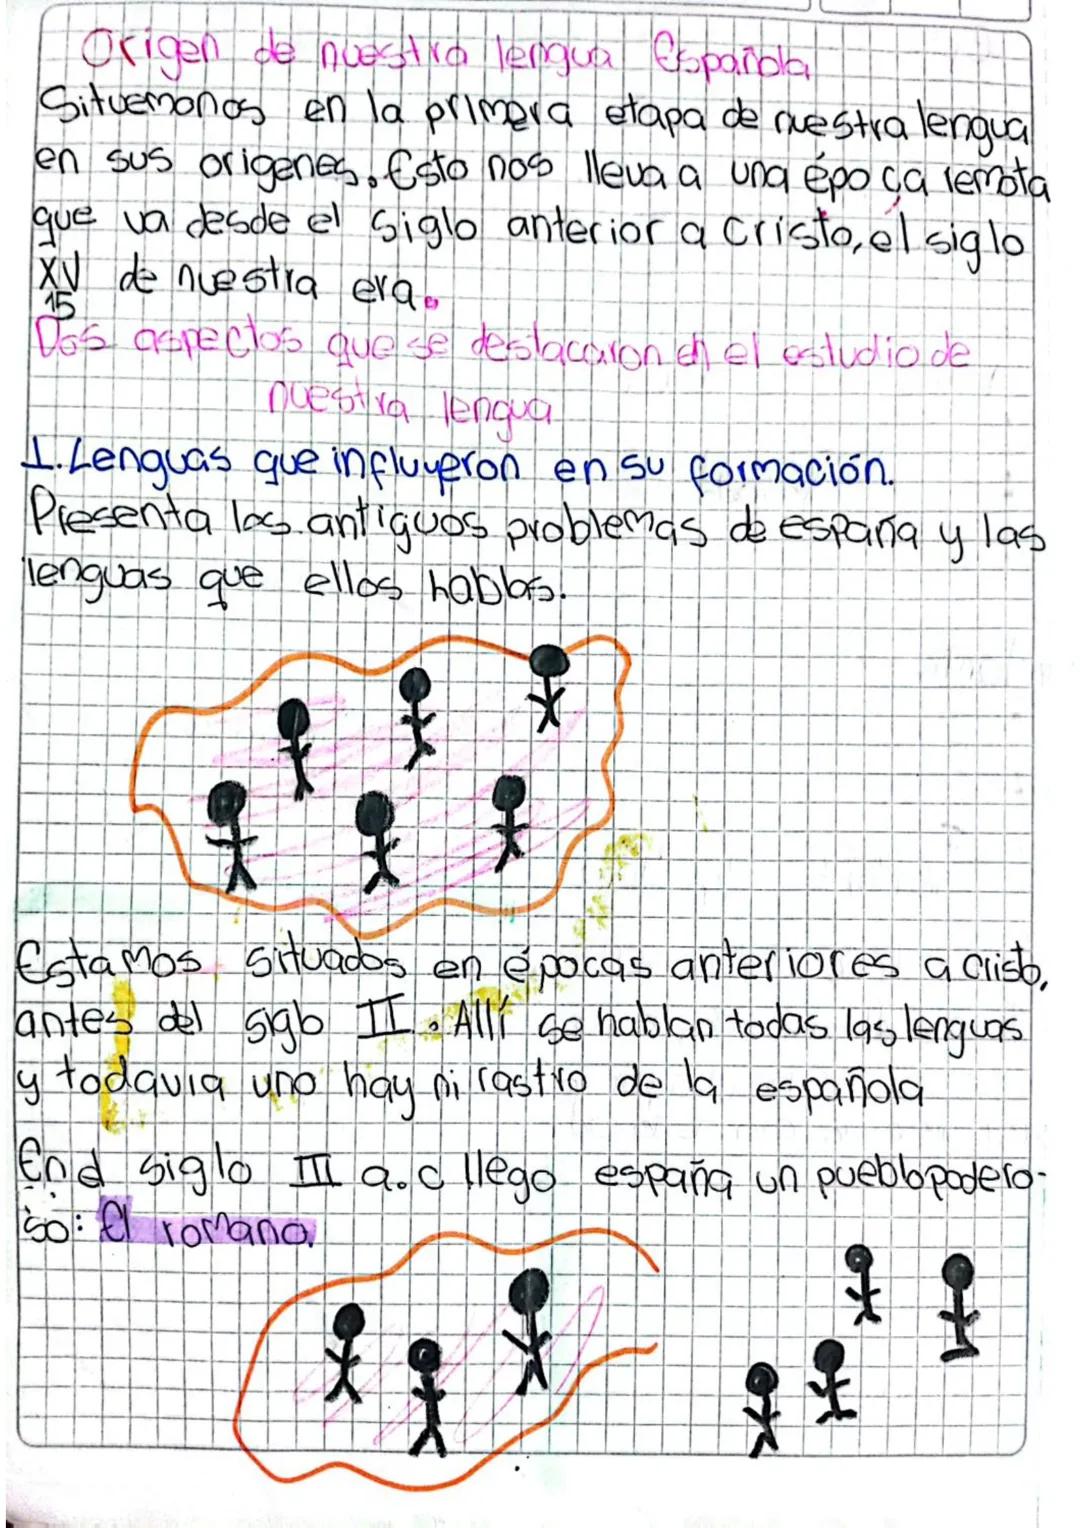 Origen de nuestra lengua Española
Situemonos en la primera etapa de nuestra lengua
en sus origenes. Esto nos lleva a una época remota
que va desde el siglo anterior a Cristo, el siglo
XV de nuestra era.
15
Dos aspectos que se destacaron en el estudio de
nuestra lengua
1. Lenguas que influyeron en su formación.
Presenta los antiguos problemas de españa y las
lenguas que ellos hablas.
Estamos situados en épocas anteriores a Cristo,
antes del siglo II. Allí se hablan todas las lenguas
y todavia uno hay ni rastro de la española
En el siglo III a.c llego españa un pueblo podero-
so: El romano.